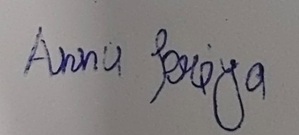 Annu Priya